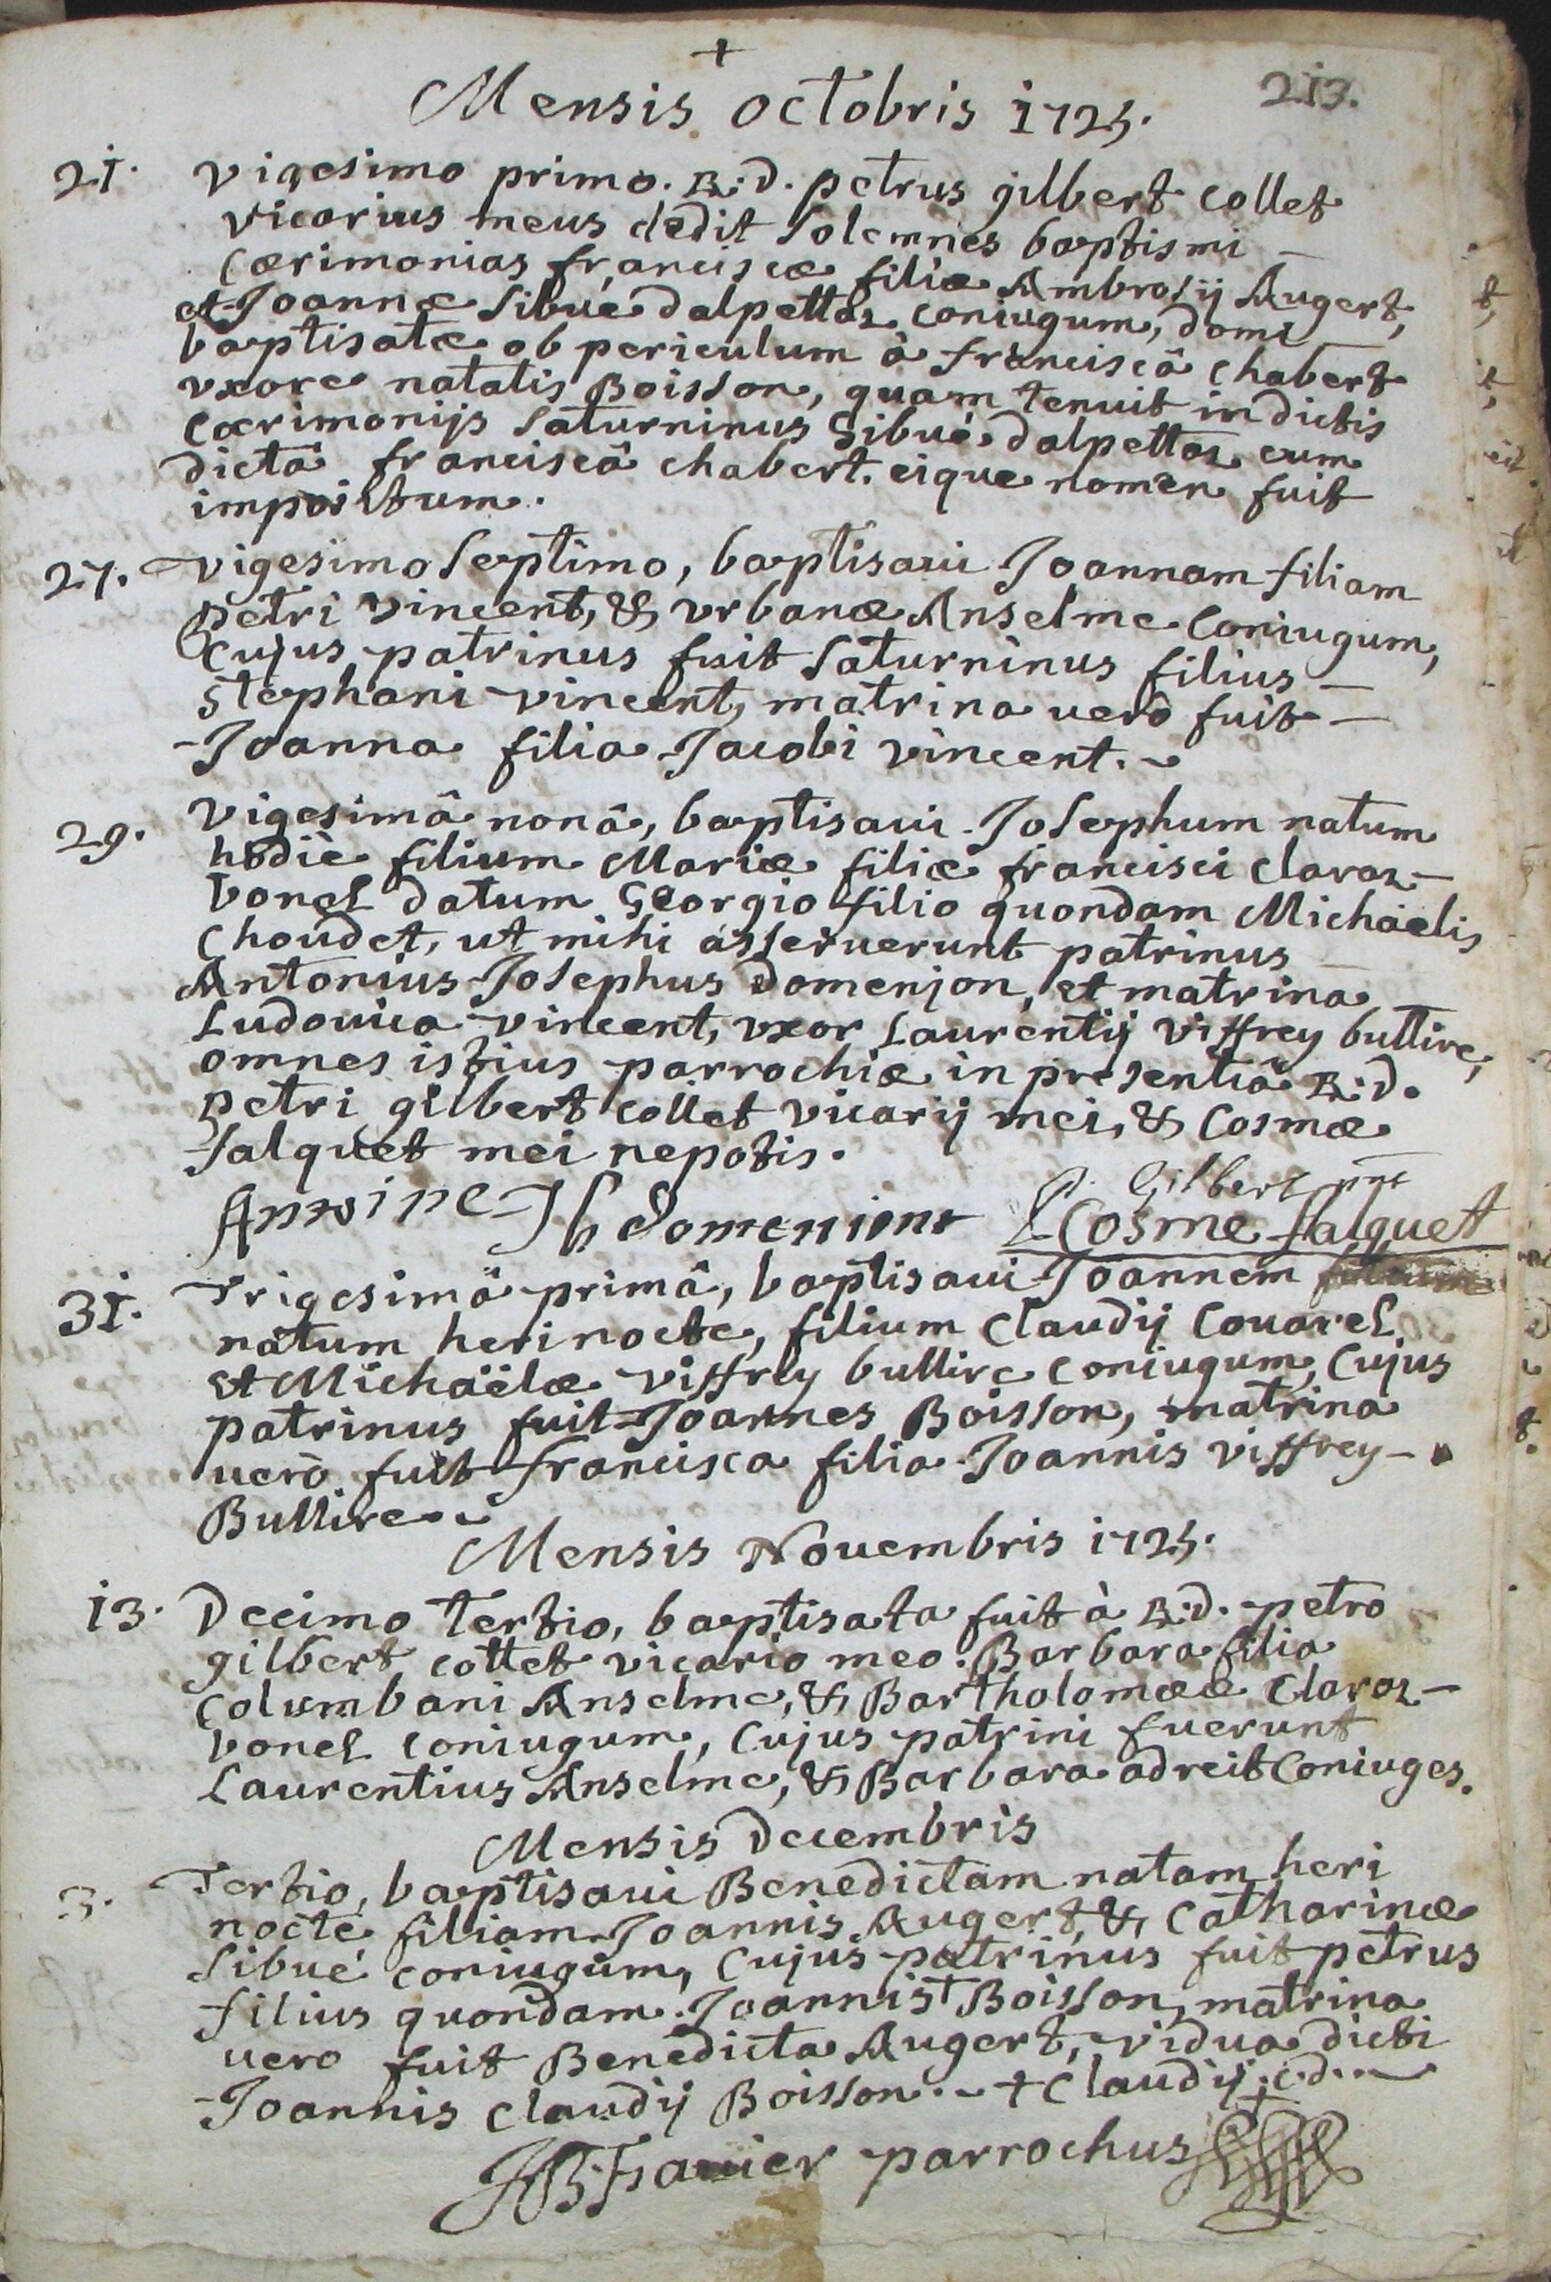 +
Mensis octobris 1725. 213.
21. vigesimo primo. R:d. petrus gilbert collet
vicarius meus dedit solemnes baptismi —
cærimonias franciscæ filiæ Ambrosij Augert,
et Joannæ Sibué dalpettaz coniugum, domi —
baptisatæ ob periculum à franciscâ chabert
vxore natalis Boisson, quam tenuit in dictis
cœrimonijs Saturninus Sibué dalpettaz cum
dictâ franciscâ chabert. eique nomen fuit
impositum.
27. vigesimo septimo, baptisaui Joannam filiam
petri vincent, & vrbanæ Anselme coniugum,
cujus patrinus fuit Saturninus filius —
stephani vincent, matrina uerò fuit —
Joanna filia Jacobi vincent.
29. vigesimâ nonâ, baptisaui Josephum natum
hodiè filium Mariæ filiæ francisci claraz —
bonel datum Georgio filio quondam Michaelis
choudet, ut mihi asseruerunt patrinus —
Antonius Josephus domenjon, et matrina
Ludouica vincent, vxor Laurentij viffrey bullire,
omnes istius parrochiæ in presentiâ R:d.
petri gilbert collet vicarij mei, & Cosmæ
falquet mei nepotis.
Antoine Jh domenion P. Gilbert ptre
Cosme falquet
31. Trigesimâ primâ, baptisaui Joannem
natum heri nocte, filium Claudij Couarel
et Michaëlæ viffrey bullire coniugum, cujus
patrinus fuit Joannes Boisson, matrina
uerò fuit francisca filia Joannis viffrey —
Bullire.
Mensis Nouembris 1725.
13. Decimo tertio, baptisata fuit à R:d. petro
gilbert collet vicario meo. Barbara filia
columbani Anselme, & Bartholomææ claraz —
bonel coniugum, cujus patrini fuerunt
Laurentius Anselme, & Barbara adreit coniuges.
Mensis decembris
3. Tertio, baptisaui Benedictam natam heri
nocte filiam Joannis Augert, & Catharinæ
Sibué coniugum, cujus patrinus fuit petrus
filius quondam Joannis + Boisson, matrina
uero fuit Benedicta Augert, vidua dicti
Joannis claudij Boisson. + Claudij
parrochus